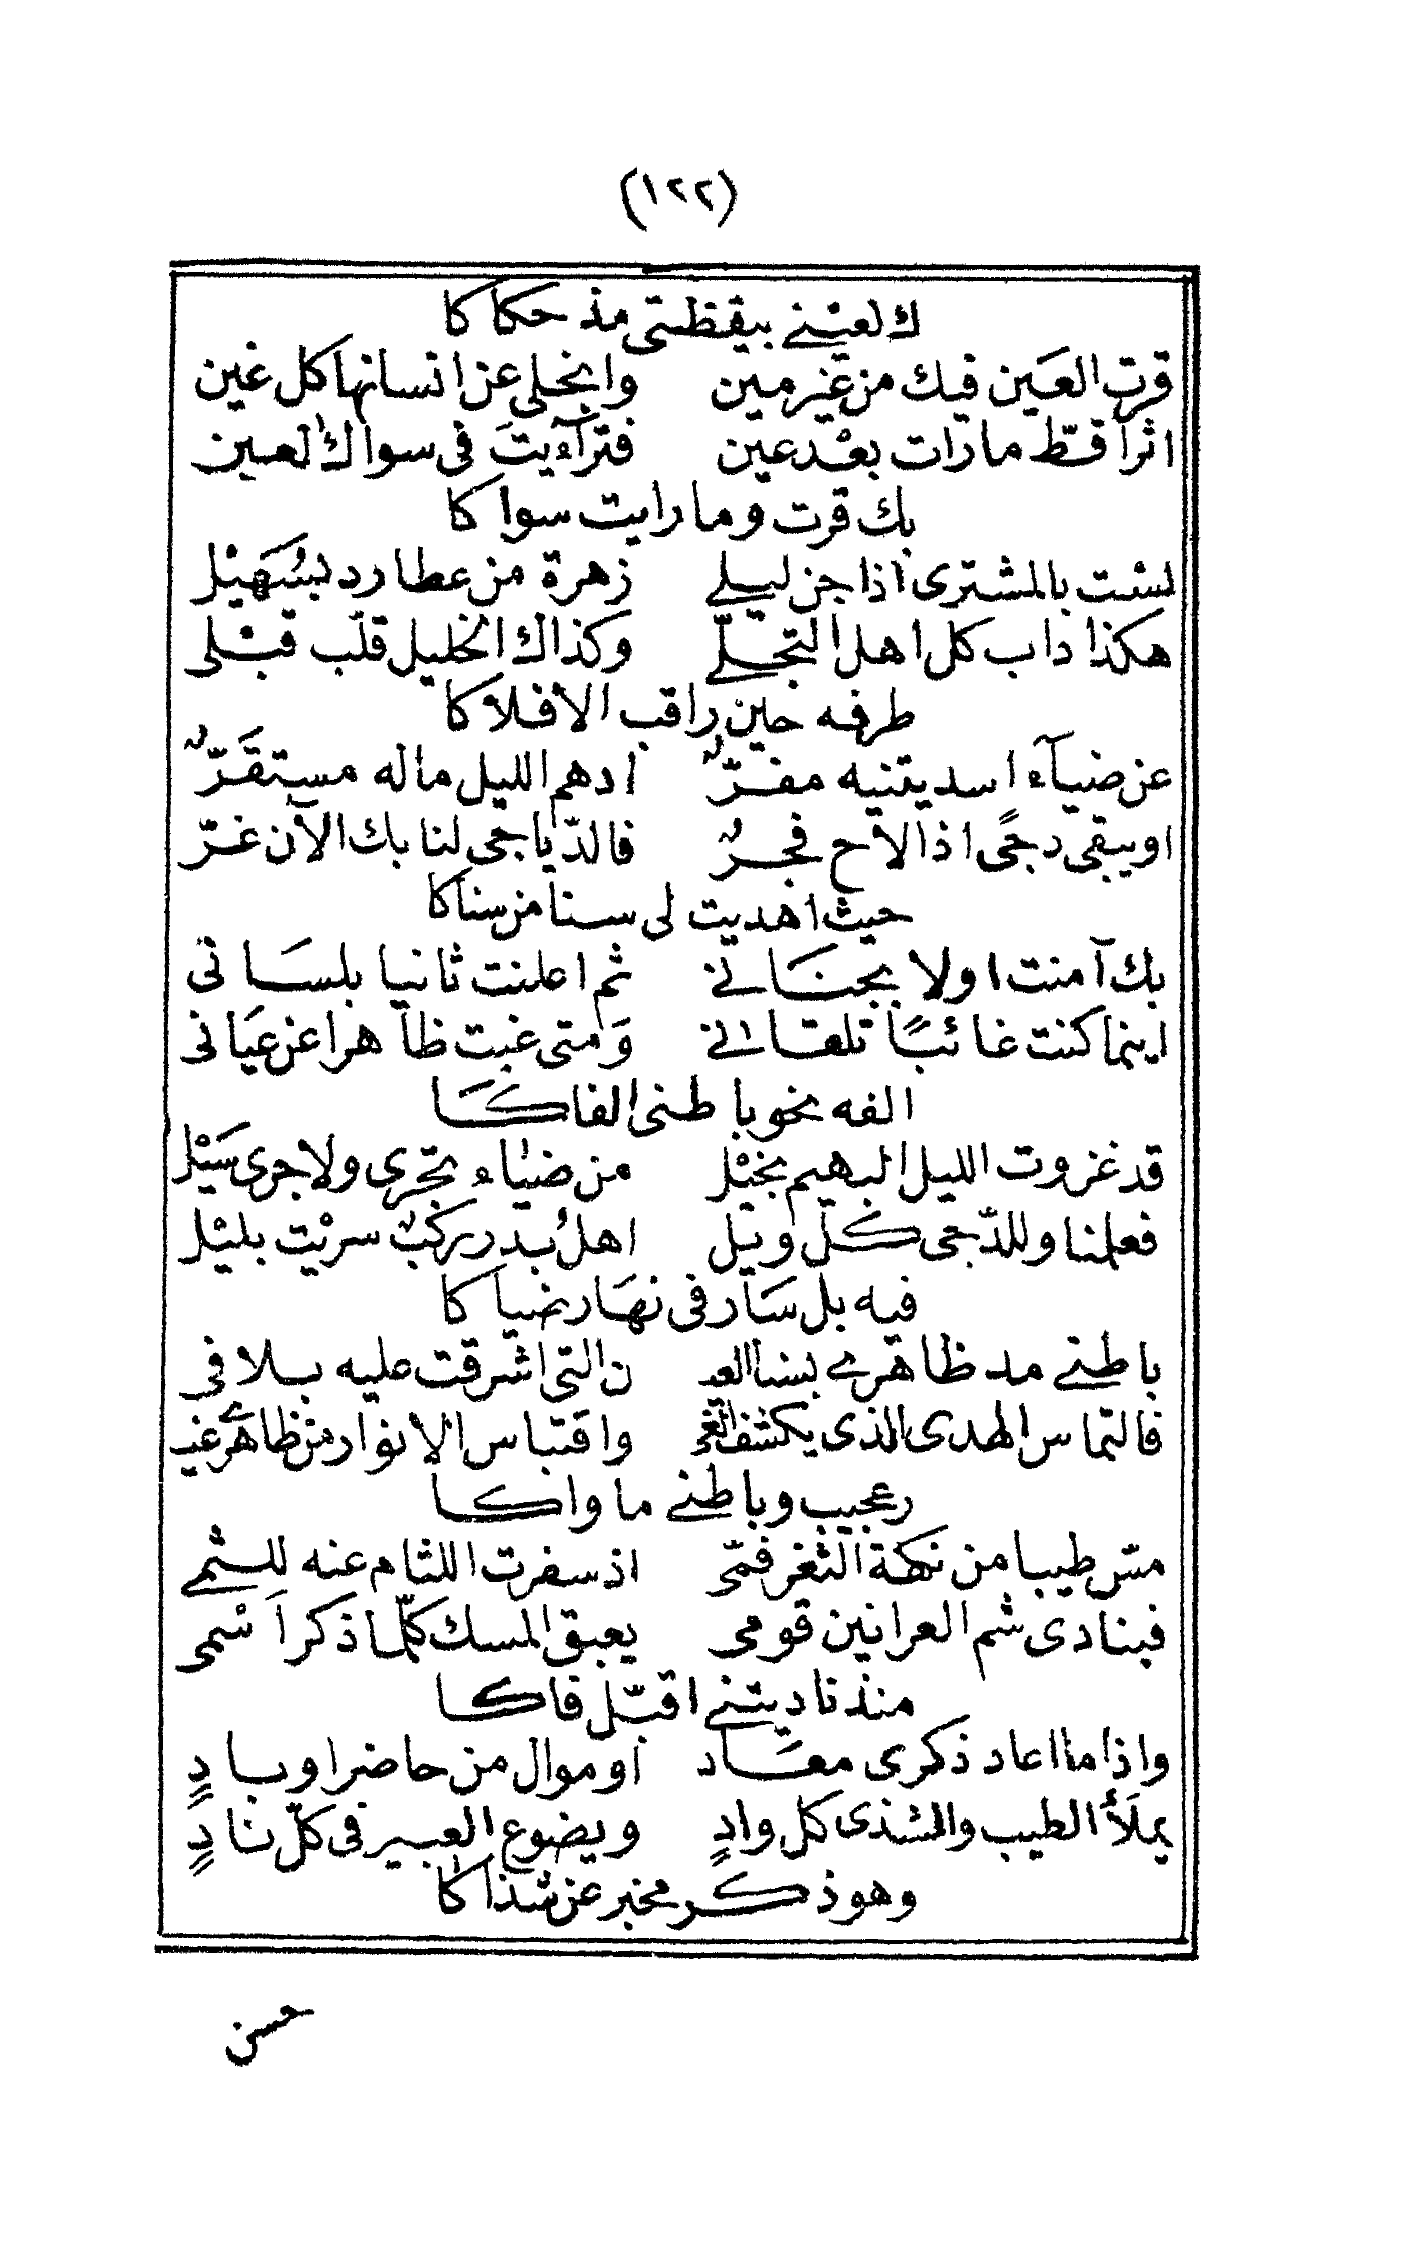 (١٢٢)
ك لعيْنے بيقظتى مذ حكاكا
قرت العَين فيك من غير مين وانجلى عن انسانها كل غين
اثرا قطّ ما رات بعْد عين فترآءيتَ فى سواك لعين
بك قرت وما رايت سواكا
لسْت بالمشترى اذا جن ليلے زهرة من عطارد بسُهَيْل
هكذا داب كل اهل التجلّے وكذاك الخليل قلّب قبْلى
طرفه حين راقب الافلاكا
عن ضيآء اسديتنيه مفرّ ادهم الليل ماله مستقَرّ
اويبقى دجًى اذا لاح فجر فالدّياجى لنا بك الآن غرّ
حيث اهديت لى سنا من سناكا
بك آمنت اولا بجنَانے ثم اعلنت ثانيا بلسَانى
اينما كنت غائبًا تلقانے وَمتى غبت ظاهرا عن عيَانى
الفه نحو باطنى الفاكَا
قد غزوت الليل البهيم بخيْل من ضياء تجرى ولا جرى سَيْل
فعلمنا وللدّجى كلّ ويل اهلُ بدر ركبٌ سريْت بليْل
فيه بل سَار فى نهَار ضياكا
باطنے مد ظاهرے بسنا العد ن التى اشرقت عليه بلا فى
فالتماس الهدى الذى يكشف الغى واقتباس الانوار من ظاهرے غيـ
ر عجيب وباطنے ماواكا
مسّ طيبا من نكهة الثغر فمّى اذ سفرت اللثام عنه للثمے
فبنادى شم العرانين قومى يعبق المسك كلّما ذكر اَسْمى
منذ ناديتنے اقبّل فاكا
واذا ما اعاد ذكرى معَاد او موال من حاضر او بادٍ
يملَأ الطيب والشذى كل وادٍ ويضوع العبير فى كلّ نادٍ
وهو ذكر مخبر عن شذاكا
حسن